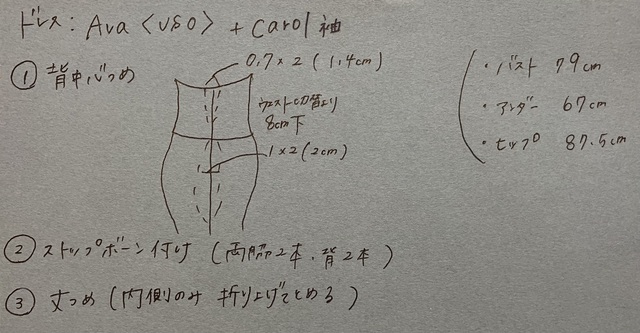 ドレス: Ava〈USO〉+ Carol 袖
① 背中心つめ
0.7×2 (1.4cm)
ウエスト切替より
8cm下
1×2 (2cm)
・バスト 79cm
・アンダー 67cm
・ヒップ 87.5cm
② ストップボーン付け (両脇2本、背2本)
③ 丈つめ (内側のみ 折り上げてとめる)